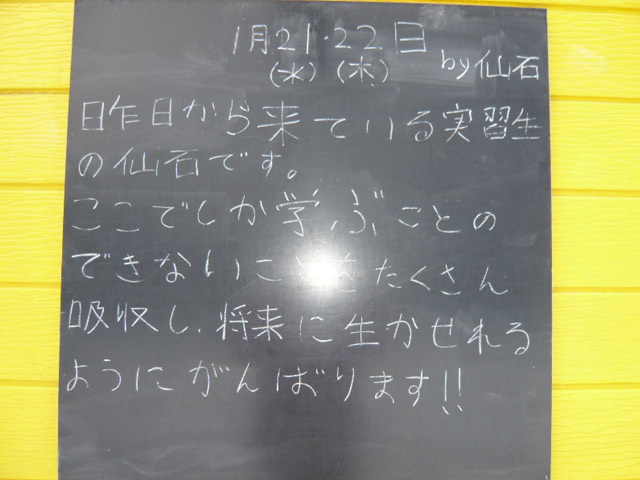 1月21・22日
(水)(木)
by仙石
昨日から来ている実習生
の仙石です。
ここでしか学ぶことの
できないことをたくさん
吸収し、将来に生かせれる
ようにがんばります!!